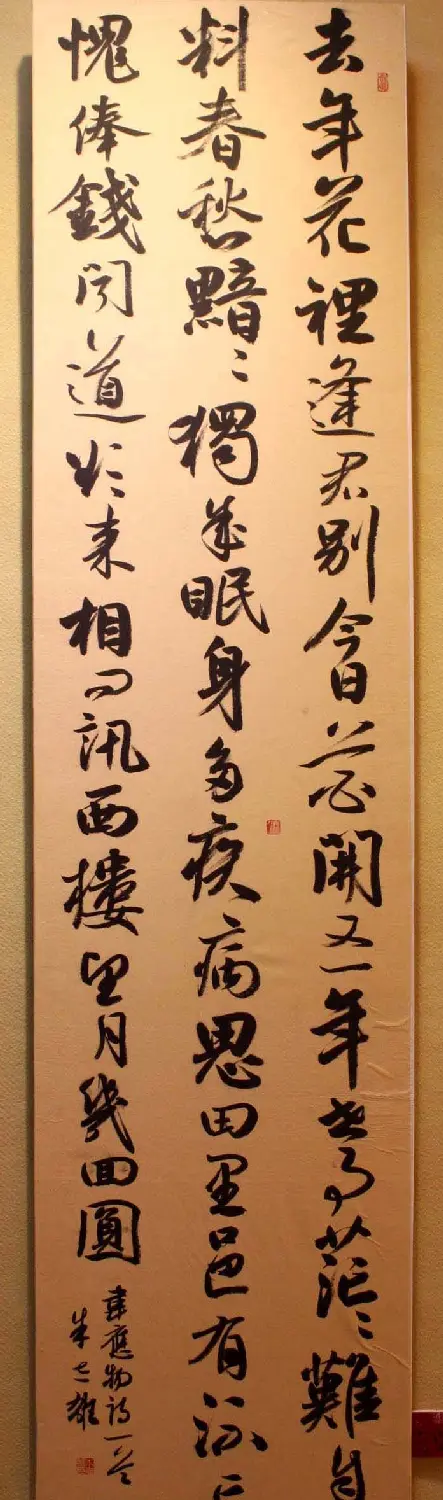 去年花裡逢君別今日花開又一年世事茫〻難自
料春愁黯〻獨成眠身多疾病思田里邑有流亡
愧俸錢聞道欲來相問訊西樓望月幾回圓
韋應物詩一首
朱雄